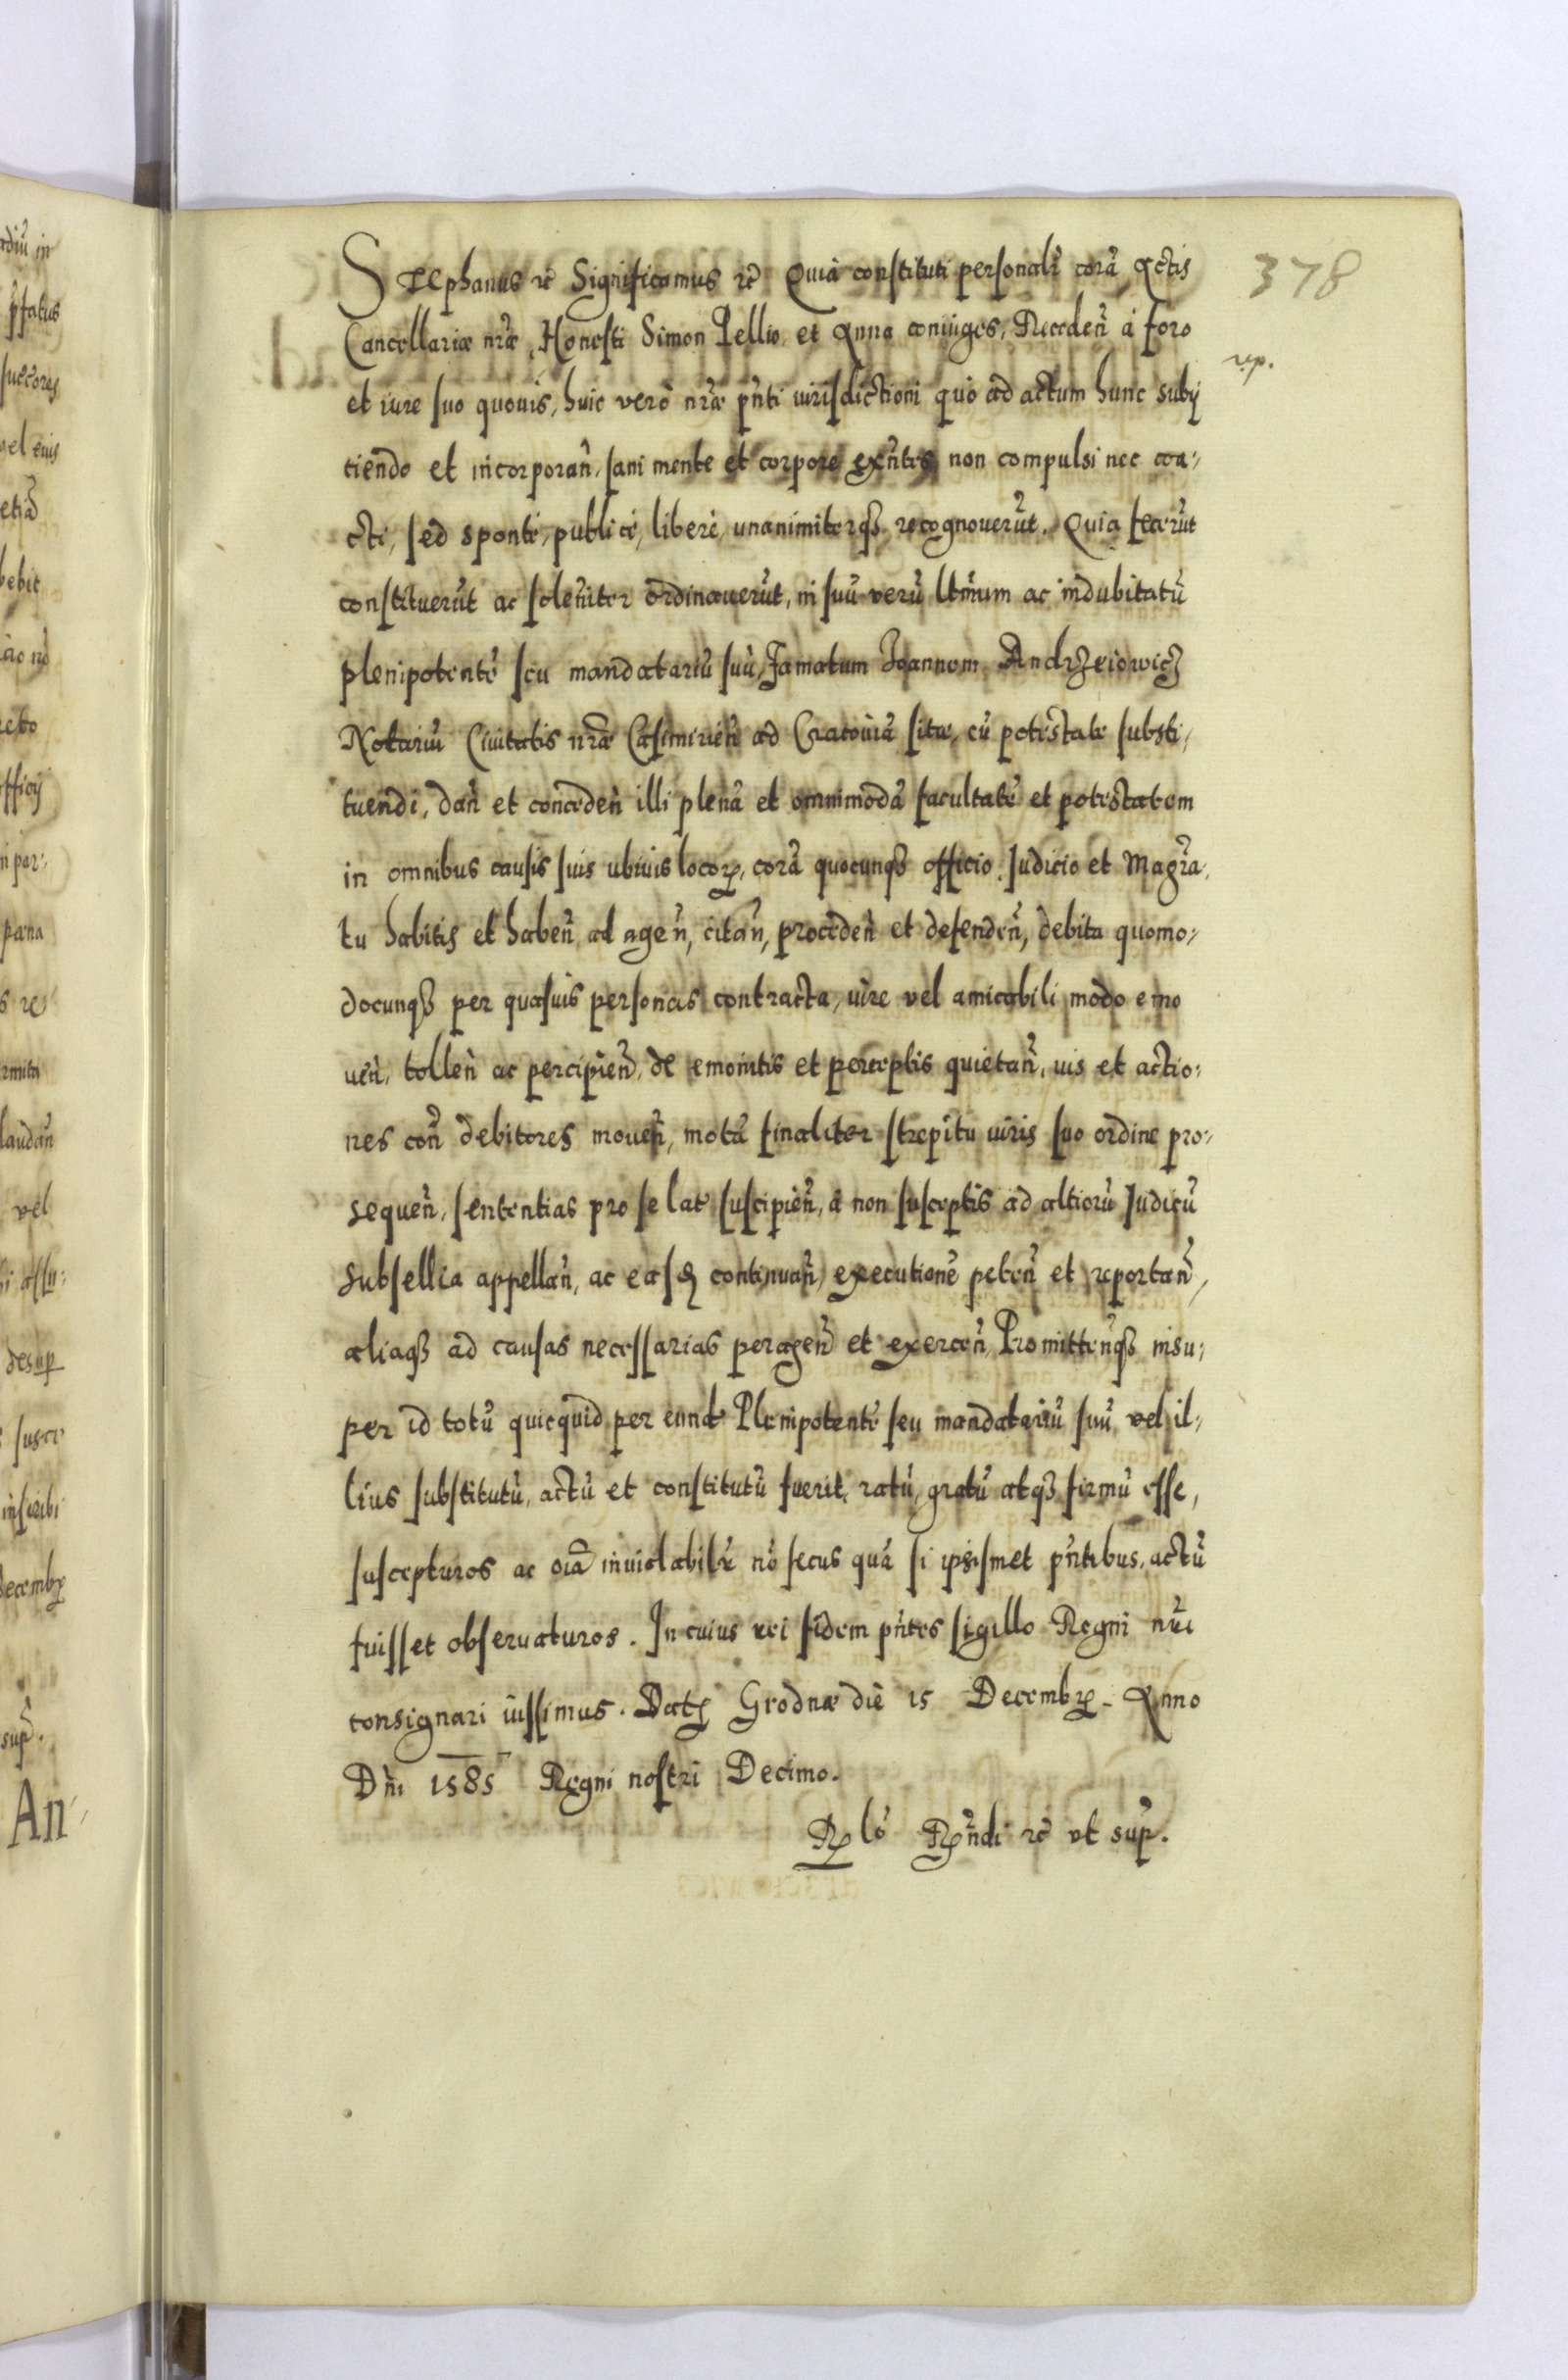 378
STEphanus rc̃ Significamus rc̃ Quia constituti personalr̃ corã Actis
Cancellariæ nr̃æ, Honesti Simon Pellio et Anna coniuges, Receden̄ à foro
rıp.
et iure suo quouis, huic verò nr̃æ pñti iurisdictioni quò ad actum hunc subij
ciendo et incorporan̄, sani mente et corpore exñtes non compulsi nec coa-
cti, sed spontè, publicè, liberè, unanimiterqȝ recognouerũt. Quia fecerũt
constituerũt ac solen̄iter ordinauerũt, in suũ verũ ltm̃um ac indubitatũ
plenipotentẽ seu mandatariũ suũ, Famatum Joannem Andrzeiowicz
Notariũ Ciuitatis nr̃æ Casimirien̄ ad Cracouiã sitæ, cũ potestate substi-
tuendi, dan̄ et conceden̄ illi plenã et omnimodã facultatẽ et potestatem
in omnibus causis suis ubiuis locorꝝ, corã quocunqȝ officio, Judicio et Magr̃a-
tu habitis et haben̄ ad agen̄, citan̄, proceden̄ et defenden̄, debita quomo-
docunqȝ per quasuis personas contracta, iure vel amicabili modo emo
uen̄, tollen̄ ac percipien̄, de emonitis et perceptis quietan̄, ius et actio-
nes con̄ debitores mouen̄, motã finaliter strepitu iuris suo ordine pro-
sequen̄, sententias pro se lat suscipien̄, à non susceptis ad altiorũ Judicũ
subsellia appellan̄, ac easdꝫ continuan̄, executionẽ peten̄ et reportan̄,
aliaqȝ ad causas necessarias peragen̄ et exercen̄, Promitten̄qȝ insu-
per id totũ quicquid per eund Plenipotentẽ seu mandatariũ suũ vel il-
lius substitutũ, actũ et constitutũ fuerit, ratũ, gratũ atqȝ firmũ esse,
suscepturos ac oĩa inuiolabilr̃ nõ secus quã si ipsismet pñtibus, actũ
fuisset obseruaturos. In cuius rei fidem pñtes sigillo Regni nr̃i
consignari iussimus. Datꝫ Grodnæ diè 15 Decembrꝫ Anno
Dñi 1585 Regni nostri Decimo.
Rꝫlõ Rꝫñdi rc̃ vt sup̃.